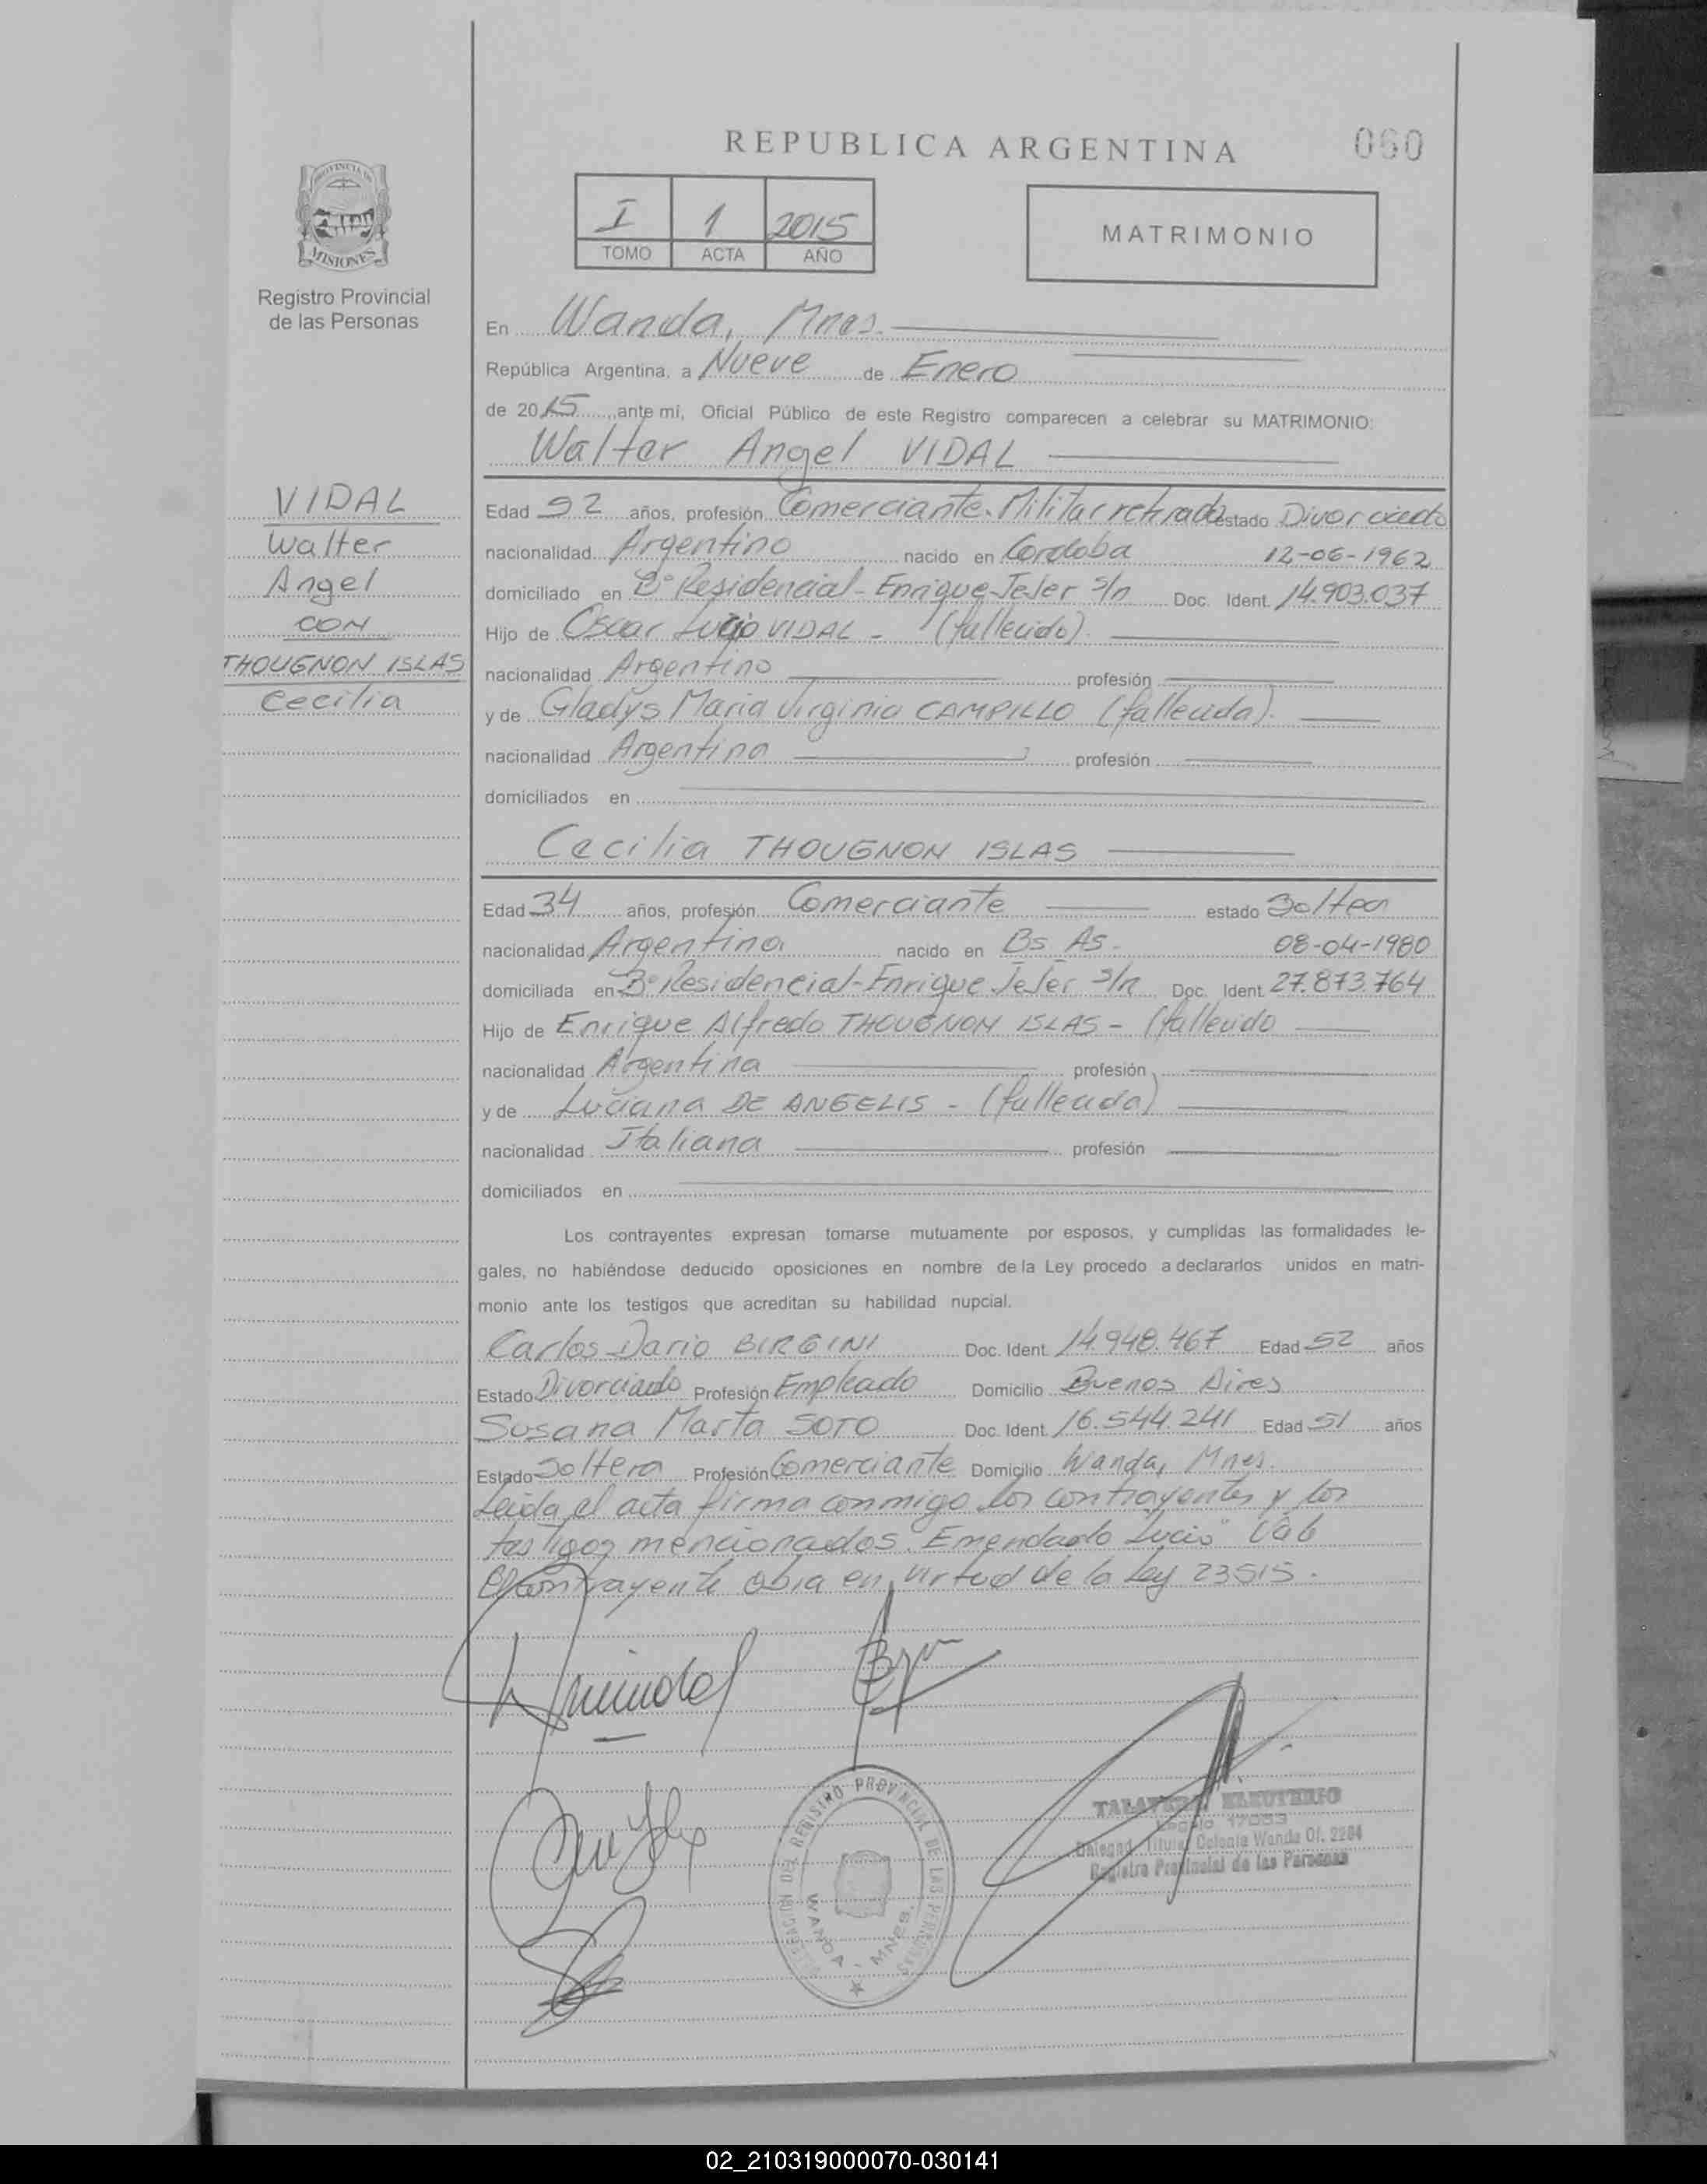 REPUBLICA ARGENTINA
060
PROVINCIA DE
MISIONES
Registro Provincial
de las Personas
I 1 2015
TOMO ACTA AÑO
MATRIMONIO
En Wanda, Mnes.
República Argentina, a Nueve de Enero
de 2015, ante mi, Oficial Público de este Registro comparecen a celebrar su MATRIMONIO:
Walter Angel VIDAL
VIDAL
Walter
Angel
CON
THOUGNON ISLAS
Cecilia
Edad 52 años, profesión Comerciante. Militar retirado estado Divorciado
nacionalidad Argentino nacido en Cordoba 12-06-1962
domiciliado en Bº Residencial - Enrique Jeler s/n Doc. Ident. 14.903.037
Hijo de Oscar Lucio VIDAL - (fallecido).
nacionalidad Argentino profesión
y de Gladys Maria Virginia CAMPILLO (fallecida).
nacionalidad Argentina profesión
domiciliados en
Cecilia THOUGNON ISLAS
Edad 34 años, profesión Comerciante estado Soltera
nacionalidad Argentina nacido en Bs As. 08-04-1980
domiciliada en Bº Residencial - Enrique Jeler s/n Doc. Ident. 27.873.764
Hijo de Enrique Alfredo THOUGNON ISLAS - (fallecido
nacionalidad Argentina profesión
y de Luciana DE ANGELIS - (fallecida)
nacionalidad Italiana profesión
domiciliados en
Los contrayentes expresan tomarse mutuamente por esposos, y cumplidas las formalidades le-
gales, no habiéndose deducido oposiciones en nombre de la Ley procedo a declararlos unidos en matri-
monio ante los testigos que acreditan su habilidad nupcial.
Carlos Dario BIRGINI Doc. Ident. 14.948.467 Edad 52 años
Estado Divorciado Profesión Empleado Domicilio Buenos Aires
Susana Marta SOTO Doc. Ident. 16.544.241 Edad 51 años
Estado Soltera Profesión Comerciante Domicilio Wanda, Mnes.
Leida el acta firma conmigo los contrayentes y los
testigos mencionados. Emendado Lucio" Vale
El contrayente obra en virtud de la Ley 23515.
DELEGACION DEL REGISTRO PROVINCIAL DE LAS PERSONAS
WANDA - MNES.
TALAVERA ELEUTERIO
Legajo 17053
Delegad Titular Colonia Wanda Of. 2204
Registro Provincial de las Personas
02_210319000070-030141